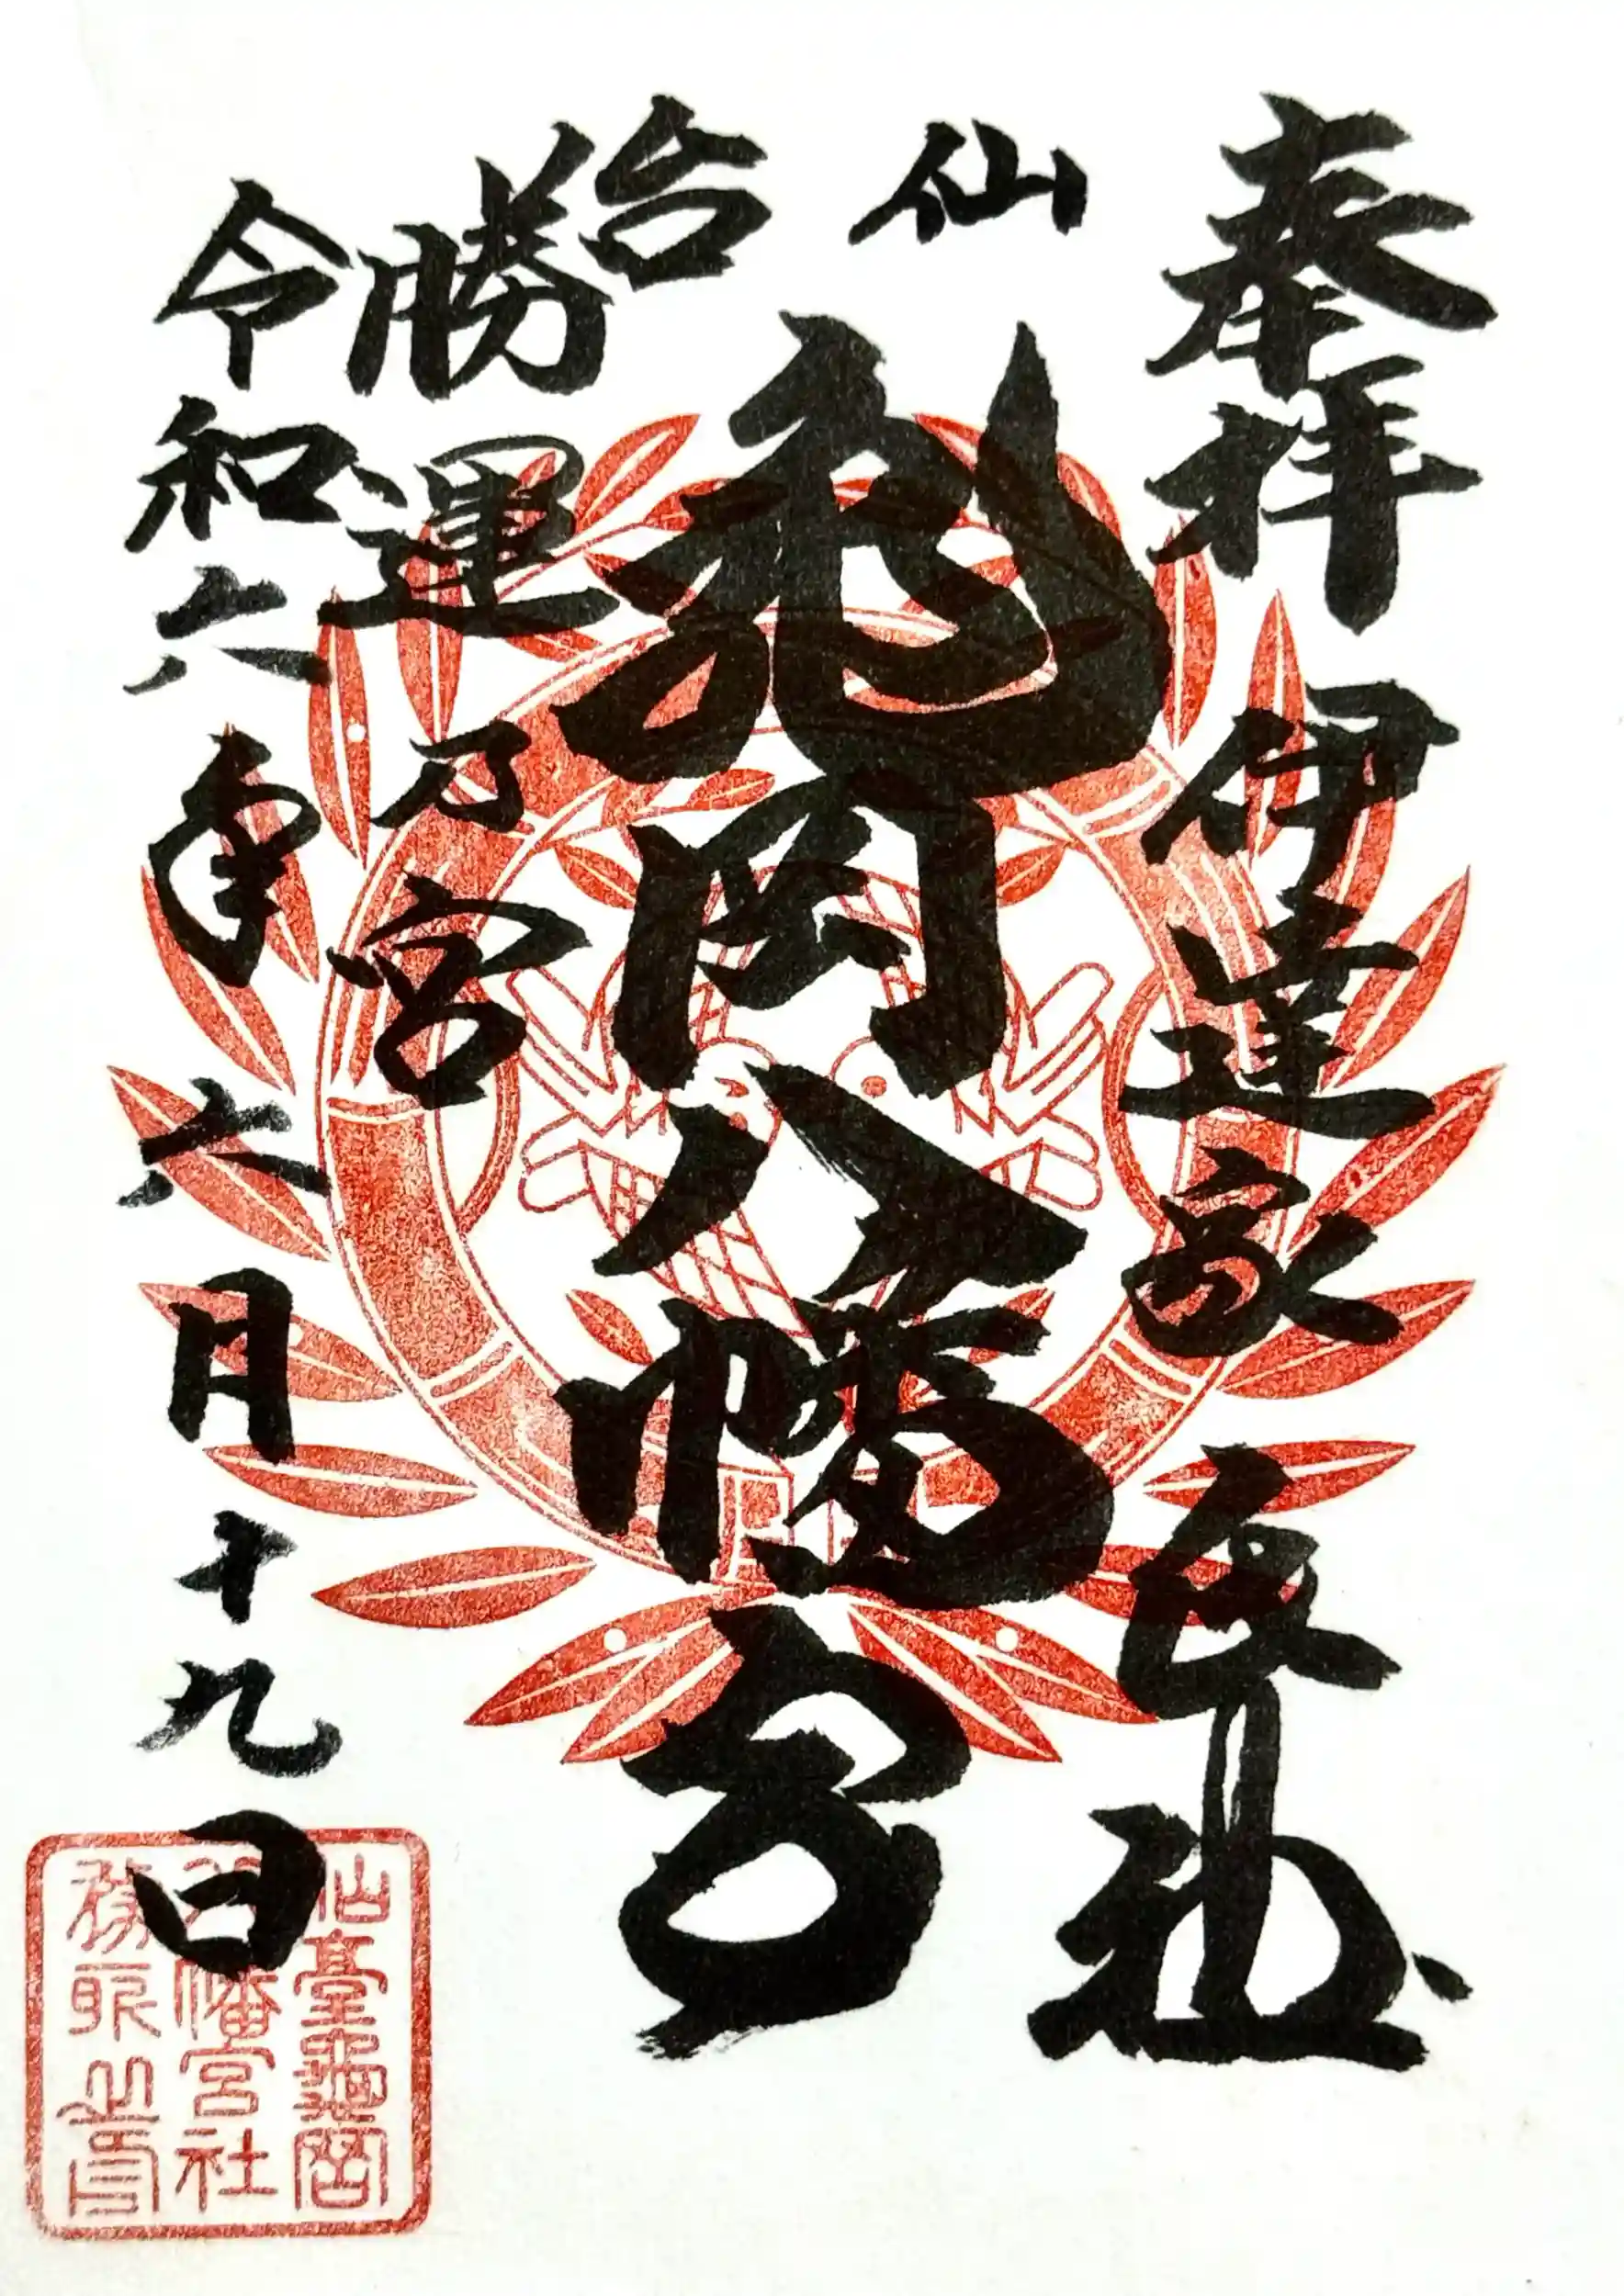 奉拝
伊達家氏社
仙台
亀岡八幡宮
勝運乃宮
令和六年六月十九日
仙臺龜岡
八幡宮社
務所之印